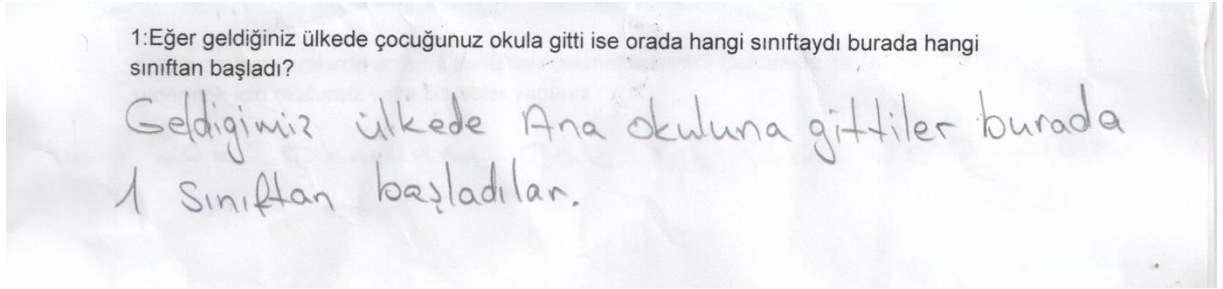 1:Eğer geldiğiniz ülkede çocuğunuz okula gitti ise orada hangi sınıftaydı burada hangi
sınıftan başladı?
Geldigimiz ülkede Ana okuluna gittiler burada
1 sınıftan başladılar.